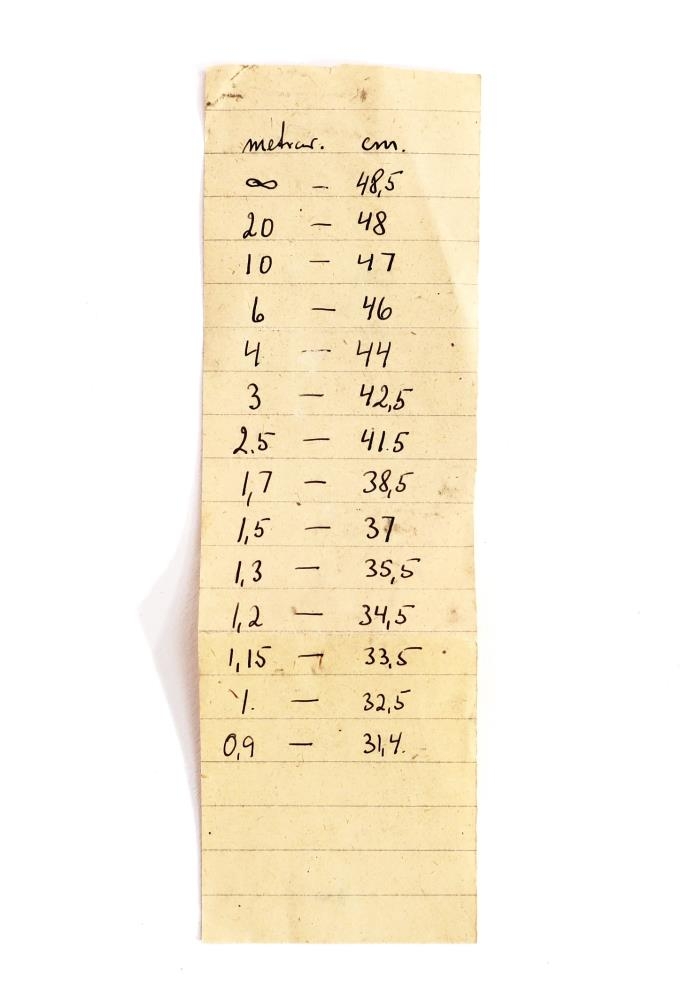 metrar. cm.
∞ – 48,5
20 – 48
10 – 47
6 – 46
4 – 44
3 – 42,5
2.5 – 41.5
1,7 – 38,5
1,5 – 37
1,3 – 35,5
1,2 – 34,5
1,15 – 33.5
1. – 32,5
0,9 – 31,4.